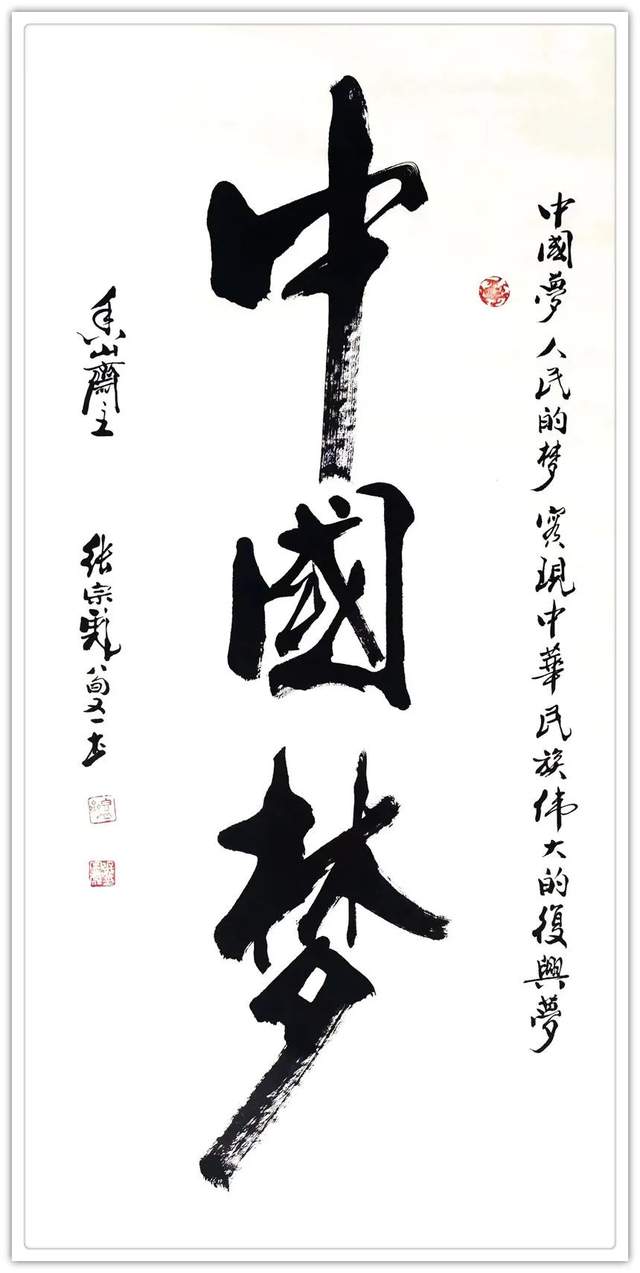 中國夢 人民的梦 實現中華民族伟大的復興夢
中國梦
香山齋主 张宗彪八旬又一书